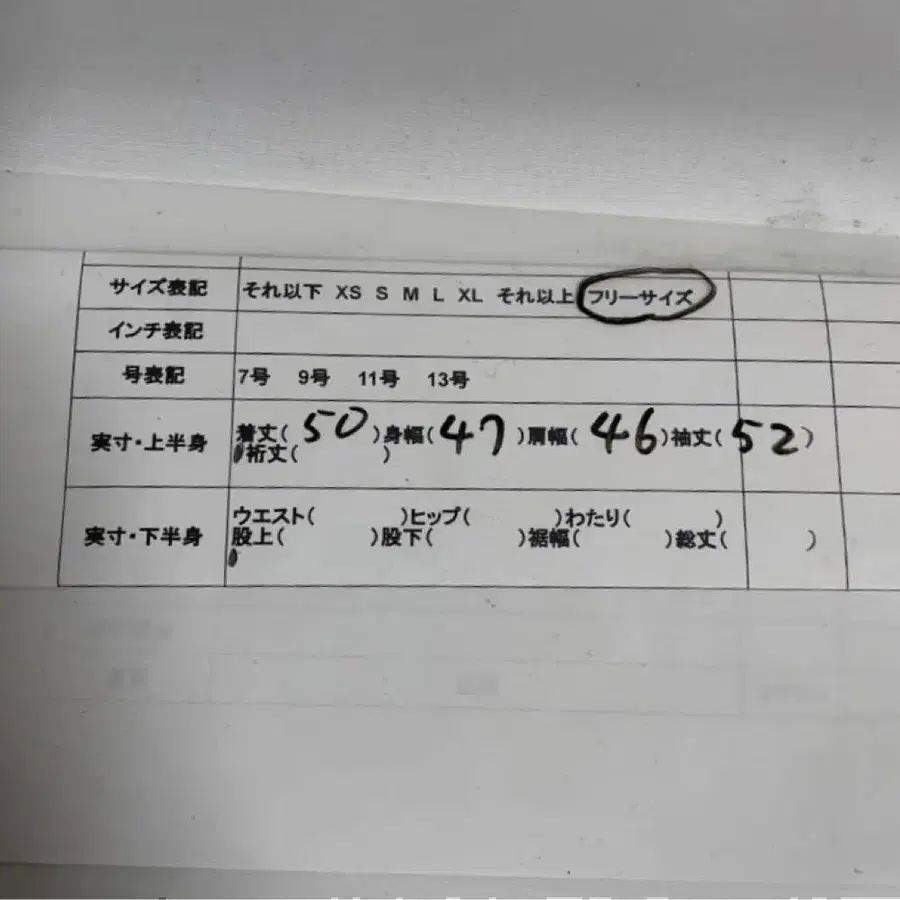 サイズ表記 それ以下 XS S M L XL それ以上 フリーサイズ
インチ表記
号表記 7号 9号 11号 13号
実寸・上半身 着丈( 50 )身幅( 47 )肩幅( 46 )袖丈( 52 )
裄丈( )
実寸・下半身 ウエスト( )ヒップ( )わたり( )
股上( )股下( )裾幅( )総丈( )